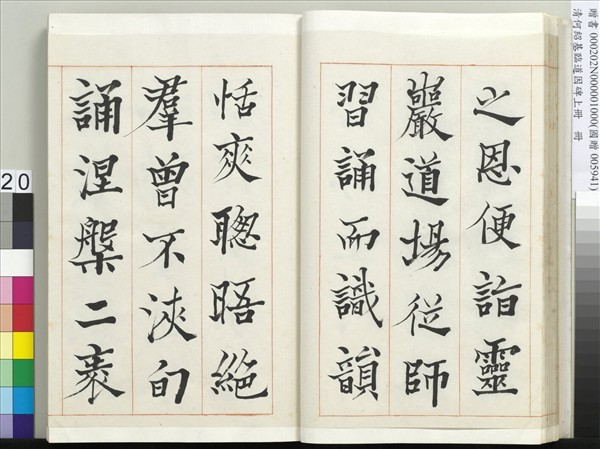 之恩便詣靈
巖道場從師
習誦而識韻
恬爽聰晤絕
羣曾不浹旬
誦涅槃二袠
贈書 000202N000001000(國贈 005941)
清何紹基臨道因碑上冊 冊
20